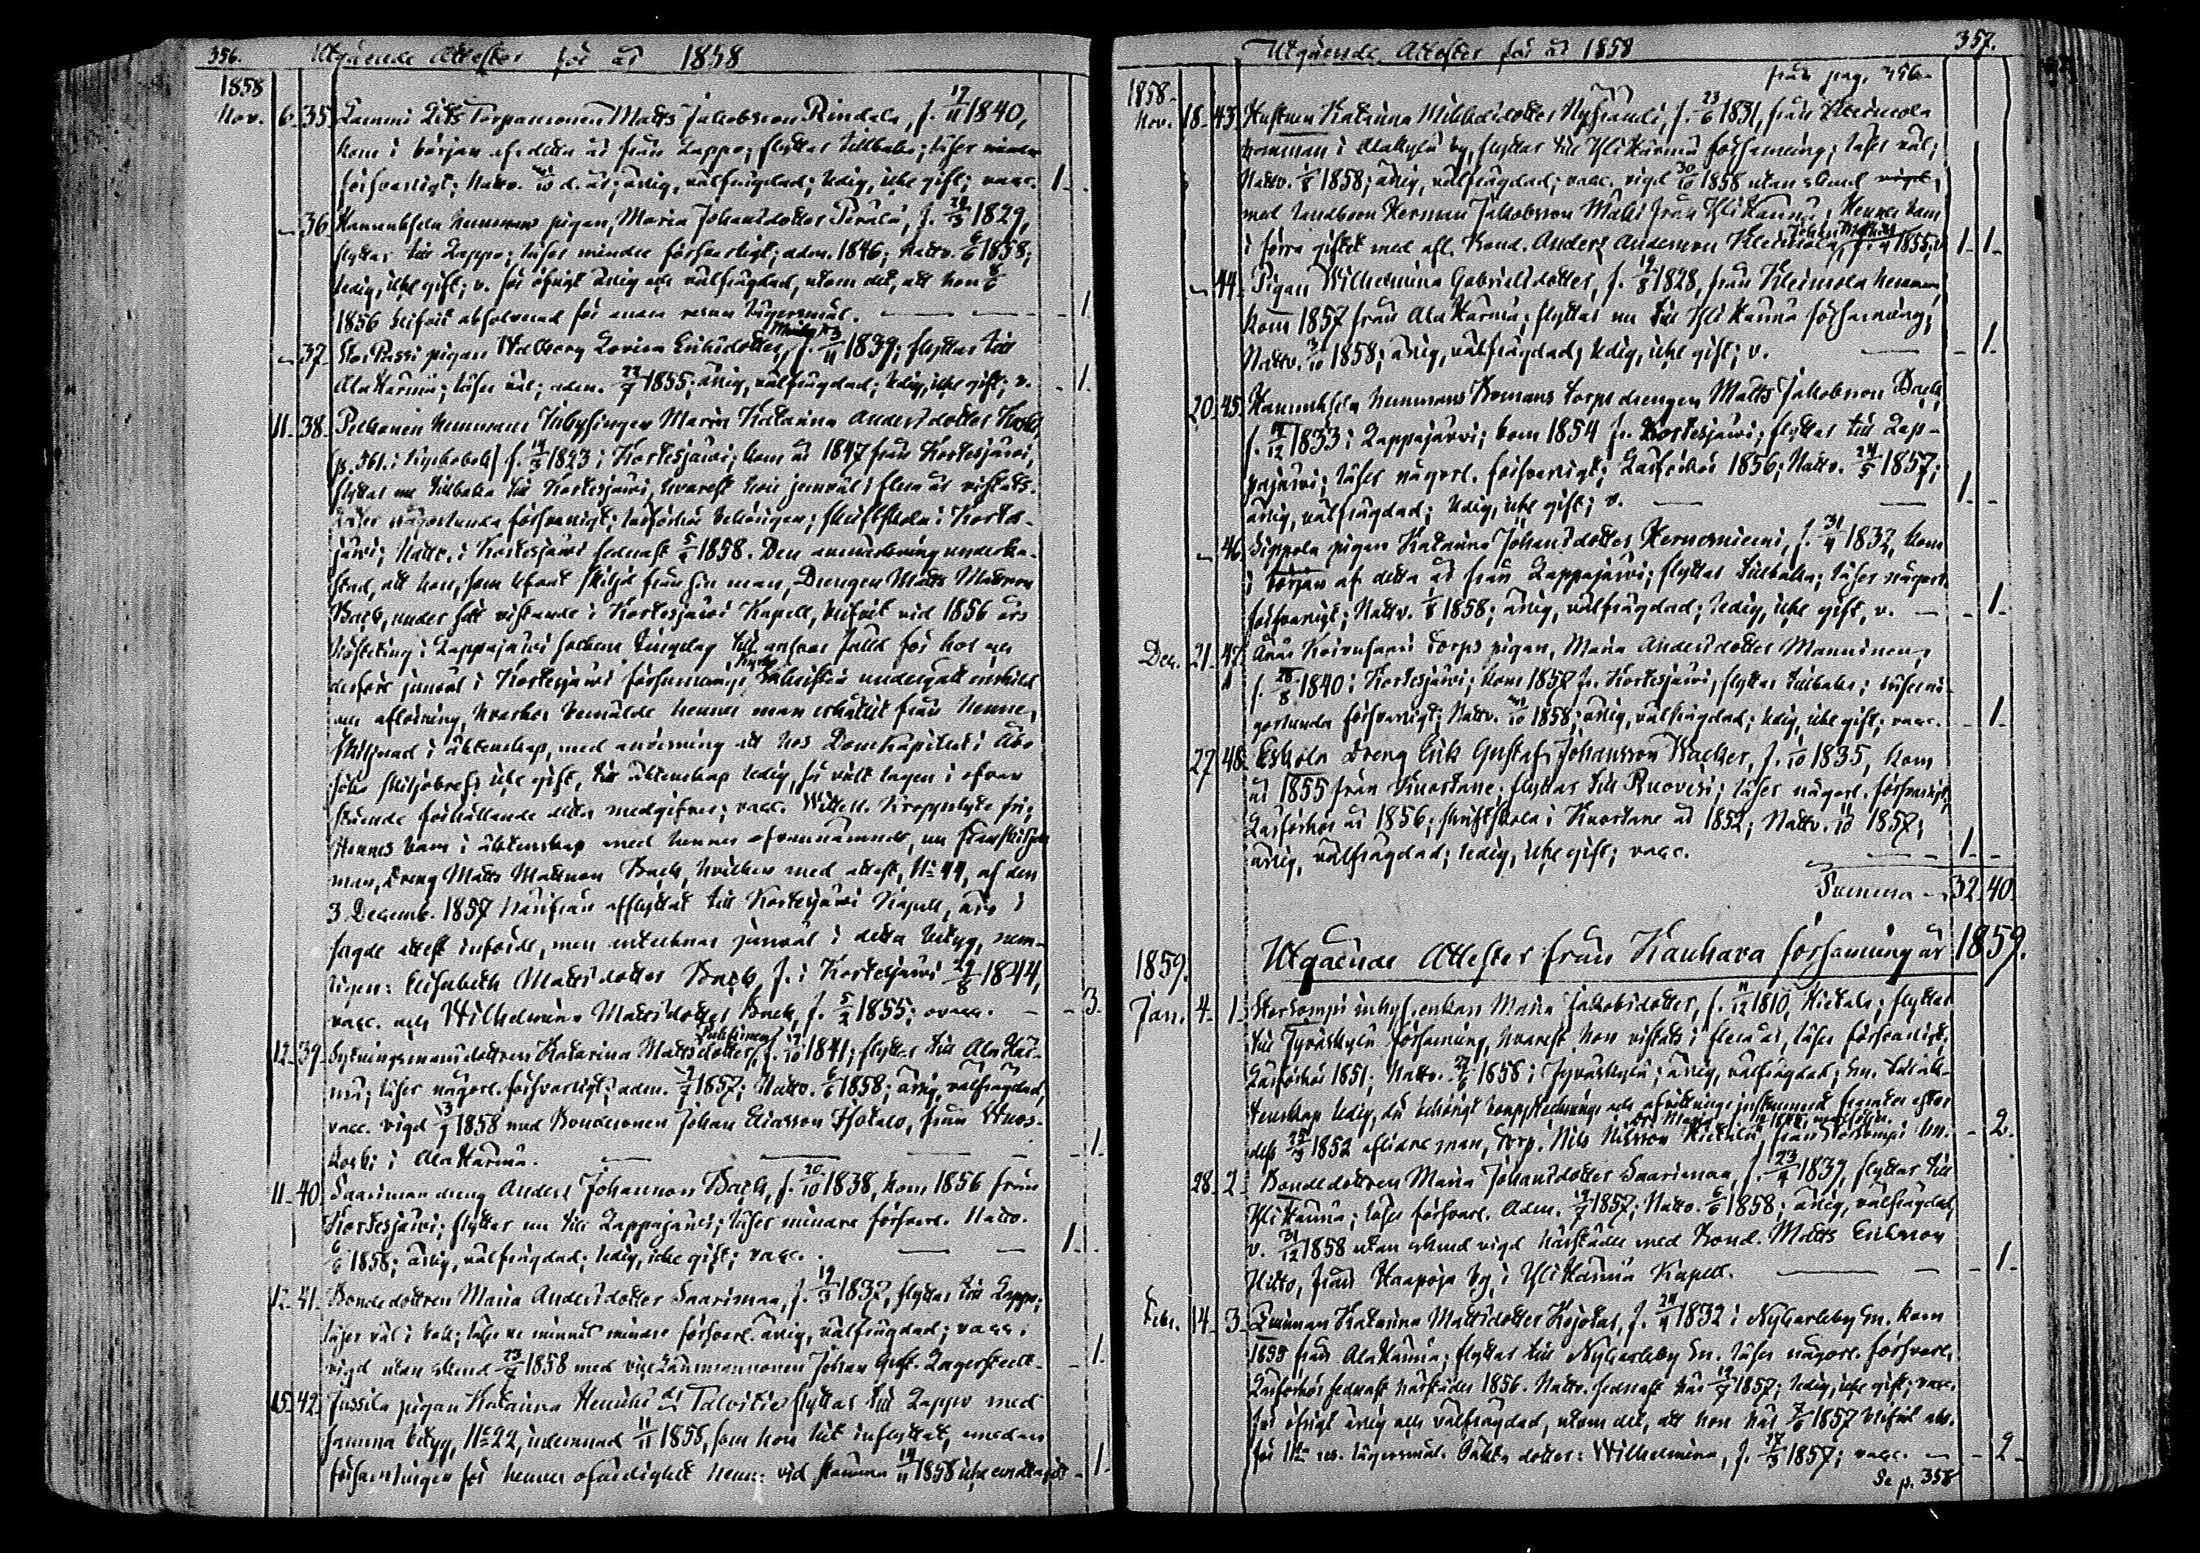 356. Utgående Attester för år 1858
1858
Nov. 6. 35. Lammi Lills Torparesonen Matts Jakobsson Rindala, f. 17/11 1840,
kom i början af detta år från Lappo; flyttar tillbaka; läser mindre
försvarligt; Nattv. /10 d. år; ärlig, välfrägdad; ledig, icke gift; vacc. 1.
36. hemmans pigan, Maria Johansdotter Perälä, f. 29/3 1829,
flyttar till Lappo; läser mindre försvarligt; adm. 1846; Nattv. 6/6 1858;
ledig, icke gift; v. för öfrigt ärlig och välfrägdad, utom det, att hon 8/6
1856 blifvit absolverad för andra resan lägersmål. 1.
37. Stor Passi pigan Walborg Lovisa Eriksdotter, f. 3/11 1839; flyttar till
Alahärmä; läser väl; adm. 23/7 1855; ärlig, välfrägdad; ledig, icke gift; v. 1.
11. 38. Pelkonen hemmans Inhysingen Maria Katarina Andersdotter
(p. 561. i kyrkobok) f. 14/3 1823 i Kortesjärvi; kom år 1847 från Kortesjärvi,
flyttar nu tillbaka till Kortesjärvi, hvarest hon jemväl i flera år vistats.
Läser någorlunda försvarligt; läsförhör behörigen; skriftskola i Kortes-
järvi; Nattv. i Kortesjärvi sednast 5/4 1858. Den anmärkning
att hon, som lefvat skild från sin man, Drengen Matts Mattsson
Back, under sitt vistande i Kortesjärvi Kapell, blifvit vid 1856 års
Höstting i Lappajärvi sockens tingslag till ansvar fälld för hor och
derföre jemväl i Kortesjärvi församlings Kyrka undergått enskild
aflösning, hvarker bemälde hennes man erhållit från henne,
skillnad i äktenskap, med anvisning att hos Domkapitlet i Åbo
söka skiljobref; icke gift, till äktenskap ledig, så vidt lagen i ofvan
stående förhållande detta medgifver; vacc.
Hennes barn i äktenskap med hennes ofvannämnde, nu frånskiljde
man, Dreng Matts Mattsson Back, hvilken med attest, N:o 44, af den
3 Decemb. 1857 härifrån afflyttat till Kortesjärvi Kapell, äro i
sagde attest införde, men antecknas jemväl i detta betyg, nem-
ligen: Elisabeth Mattsdotter Back, f. i Kortesjärvi 29/8 1844,
vacc. och Wilhelmina Mattsdotter Back, f. 5/2 1855; ovacc. 3.
12. 39. Sytningsmansdottren Katarina Mattsdotter, f. /10 1841; flyttar till Alahär-
mä; läser någorl. försvarligt; adm. 1857; Nattv. 6/6 1858; ärlig, välfrägdad,
vacc. vigd 1858 med Bondesonen Johan Eliasson, från Wuos-
koski i Alahärmä. 1.
11. 40. Saarimaa dreng Anders Johansson Back, f. 20/10 1838, kom 1856 från
Kortesjärvi; flyttar nu till Lappajärvi; läser mindre försvarl. Nattv.
6/6 1858; ärlig, välfrägdad; ledig, icke gift; vacc. 1.
12. 41. Bondedottren Maria Andersdotter Saarimaa, f. 19/3 1832, flyttar till Lappo;
läser väl i bok; läser ur minnet mindre försvarl. ärlig, välfrägdad; vacc.
vigd utan kland 23/ 1858 med Johan Gust. Lagerstedt. 1.
15. 42. Jussila pigan Katarina Henriksdr Talvitie flyttar till Lappo med
samma betyg, N:o 22, inlemnad 11/11 1855, som hon hit inflyttat, medan
församlingen för hennes ofärdighet henne vid stämma 14/11 1858 icke emottagit 1.

Utgående Attester för år 1858 357.
från pag. 356.
1858.
Nov. 18. 43. Hustrun Katarina Mikkelsdotter, f. 23/6 1831, från Kleimola
hemman i Alakylä by, flyttar till Ylihärmä församling; läser väl;
Nattv. 1/8 1858; ärlig, välfrägdad; vacc. vigd 30/10 1858 utan kland
med landbon Herman Jakobsson Mäki från Ylihärmä; Hennes barn
i förra giftet med afl. Bond. Anders Andersson Kleimola, 1855; v. 1. 1.
44. Pigan Wilhelmina Gabrielsdotter, f. 19/8 1828, från Kleimola hemman,
kom 1857 från Alahärmä; flyttar nu till Ylihärmä församling;
Nattv. 3/10 1858; ärlig, välfrägdad; ledig, icke gift; v. 1.
20. 45. hemmans torpdrengen Matts Jakobsson Back,
f. /12 1833 i Lappajärvi; kom 1854 fr. Kortesjärvi; flyttar till Lap-
pajärvi; läser någorl. försvarligt; Läsförhör 1856; Nattv. 24/5 1857;
ärlig, välfrägdad; ledig, icke gift; v. 1.
46. Sippola pigan Katarina Johansdotter Hernesniemi, f. 31/ 1832, kom
i början af detta år från Lappajärvi; flyttar tillbaka; läser någorl.
försvarligt; Nattv. 1/8 1858; ärlig, välfrägdad; ledig, icke gift, v. 1.
Dec. 21. 47. torps pigan, Maria Andersdotter Manninen,
f. 28/8 1840 i Kortesjärvi; kom 1857 fr. Kortesjärvi, flyttar tillbaka; läser nå-
gorlunda försvarligt; Nattv. /10 1858; ärlig, välfrägdad; ledig, icke gift; vacc. 1.
27. 48. Eskola Dreng Erik Gustaf Johansson Wacker, f. 1/10 1835, kom
år 1855 från Kuortane; flyttar till Ruovesi; läser någorl. försvarligt;
Läsförhör år 1856; skriftskola i Kuortane år 1852; Nattv. 11/10 1857;
ärlig, välfrägdad; ledig, icke gift; vacc. 1.
Summa 32. 40.
1859. Utgående Attester från Kauhava församling år 1859.
Jan. 4. 1. inhys. enkan Maria Jakobsdotter, f. /12 1810, Hietala; flyttar
till Jyväskylä församling, hvarest hon vistats i flera år, läser försvarligt;
Läsförhör 1851; Nattv. 1858 i Jyväskylä; ärlig, välfrägdad; En. till äk-
tenskap ledig, då behörigt bouppteckning och afvittrings instrument framtes efter
dess 1852 aflidne man, Torp. Nils Nilsson Hietala, från 2.
28. 2. Bondedottren Maria Johansdotter Saarimaa, f. 23/4 1839, flyttar till
Ylihärmä; läser försvarl. Adm. 1857; Nattv. 6/6 1858; ärlig, välfrägdad,
v. 31/12 1858 utan kland vigd härstädes med Bond. Matts Eriksson
Hitto, från Haapoja by, i Ylihärmä Kapell. 1.
Febr. 14. 3. Qvinnan Katarina Mattsdotter, f. 24/4 1832 i Nykarleby
1855 från Alahärmä; flyttar till Nykarleby läser någorl. försvarl.
Läsförhör sednast härstädes 1856. Nattv. sednast här 1857; ledig, icke gift; vacc.
för öfrigt ärlig och välfrägdad, utom det, att hon här 1857 blifvit abs.
för 1:sta res. lägersmål. Oäkta dotter: Wilhelmina, f. 1857; vacc. 2.
Se p. 358